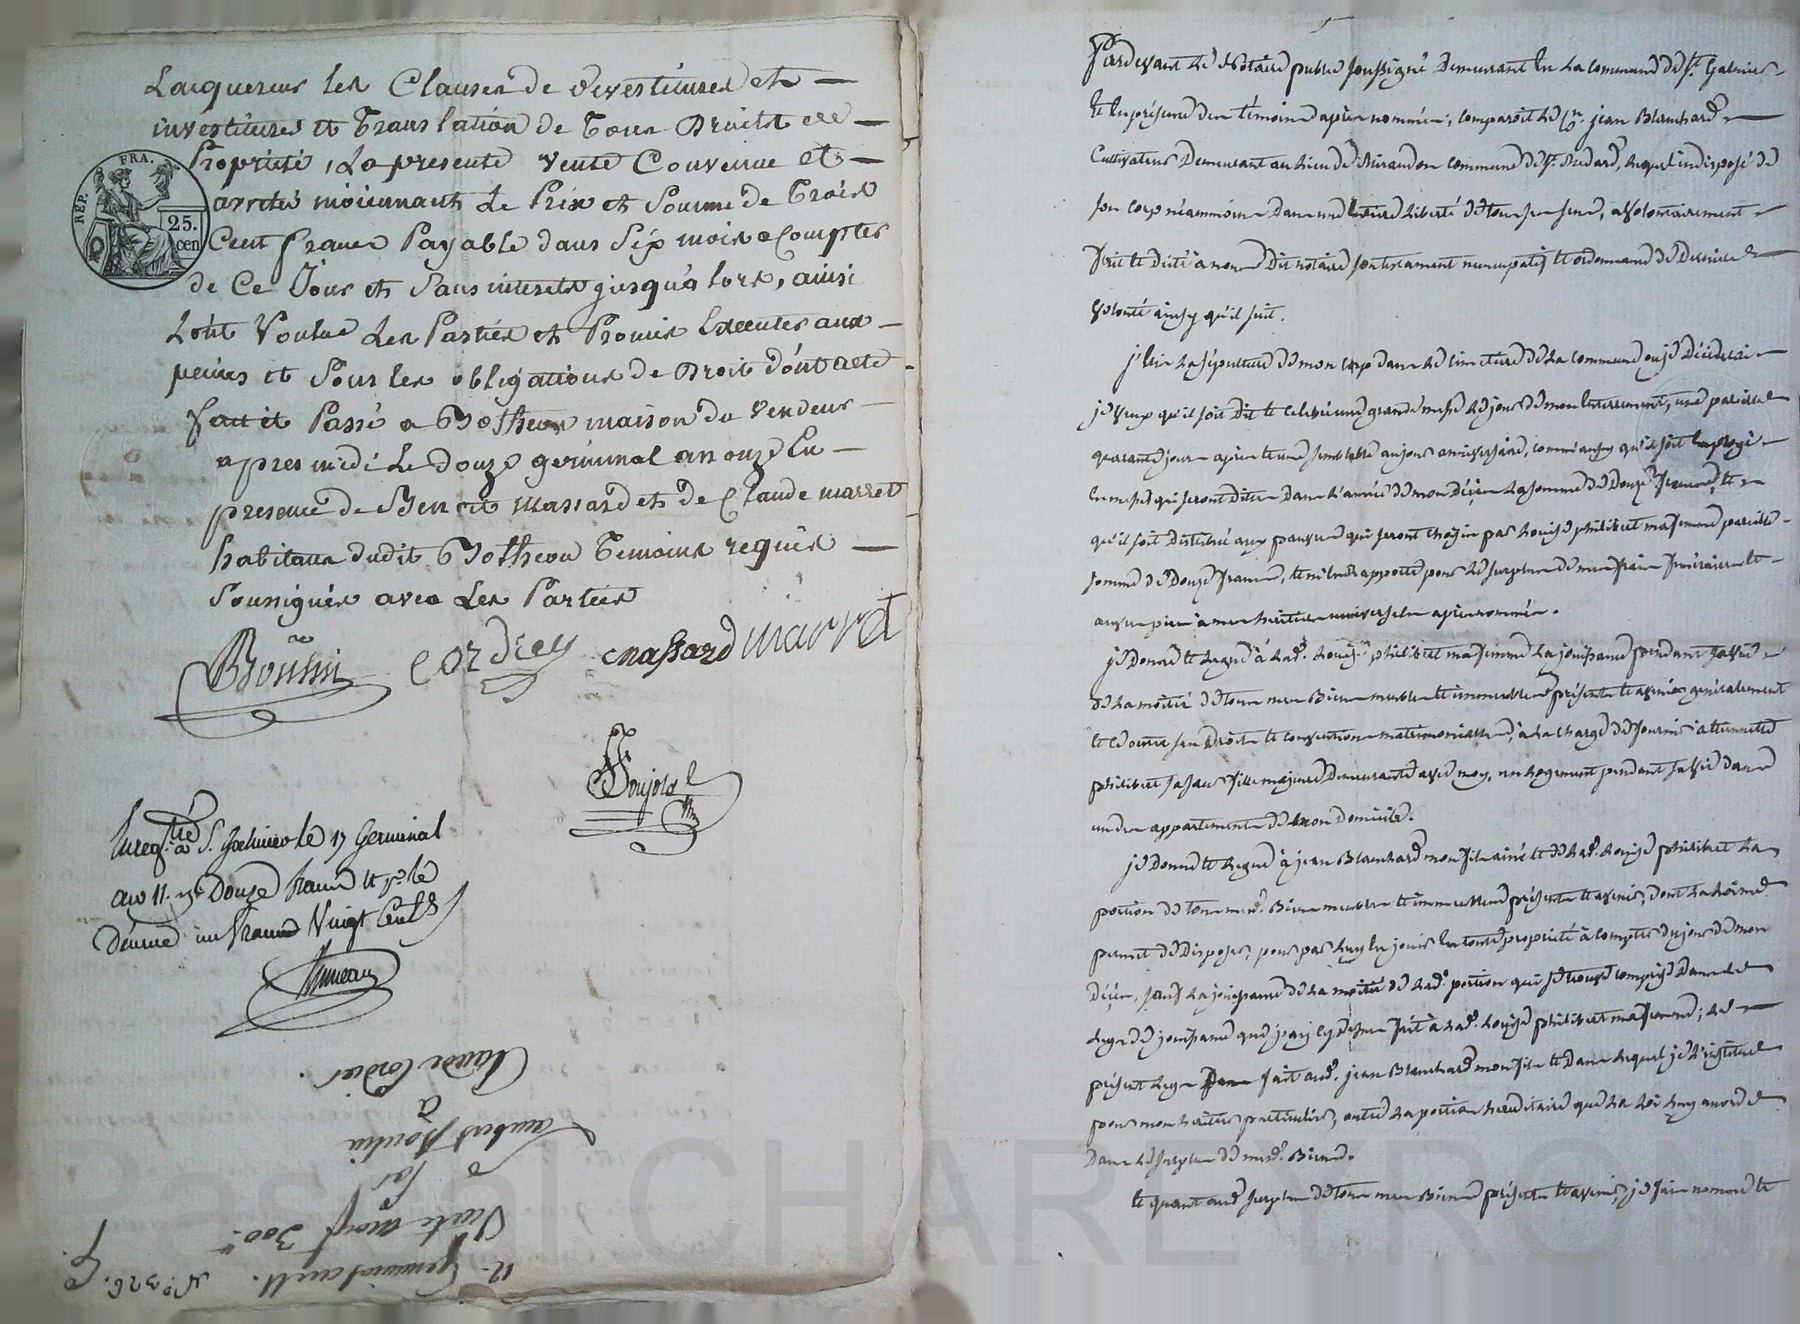 Lacquereur les Clauses de devestitures et —
investitures et translation de tous Droits de —
Propriété, La presente Vente Convenue et —
arretée moiennant le Prix et Somme de Trois
Cent francs Payable dans Six mois a Compter
de Ce Jour et Sans interets jusqu'a lors, ainsi
L'ont Voulue Les Parties et Promis Executer aux —
peines et Sous les obligations de Droit dont acte
fait et Passé a Botheon maison du Vendeur —
apres midi Le Douze germinal an onze En —
presence de Benoit Massard et de Claude marret
habitans dudit Botheon Temoins requis —
Soussignés avec Les Parties
REP. FRA.
25.
cen
Cordier Massard Marret
Enregtré à S. Galmier le 17 Germinal
an 11. Douze francs et pr le
Decime un franc Vingt Cent
Claude Cordier.
à
par
Vente de 300
12 Germinal an 11.
No. 326.
Pardevant Le Notaire public soussigné Demeurant En La Commune de St. Galmier
Et En présence des témoins après nommés, comparoit Le Cn. jean Blanchard
Cultivateur Demeurant au Lieu de commune de St. Medard, Lequel indisposé de
son corps néanmoins Dans une Entière Liberté de tous ses sens, a volontairement
Dicté à moy Dit notaire son testament nuncupatif et ordonnance de Dernière
volonté ainsy qu'il suit.
j'Elis La sépulture de mon corps dans Le cimetière de La commune ou je Décéderai
je veux qu'il soit Dit et Célébré une grande messe Le jour de mon Enterrement, une pareille
quarante jours après et une semblable au jour anniversaire, comme aussy qu'il soit Employé
En messes qui seront Dites Dans L'année de mon Décès La somme de Douze francs, et
qu'il soit Distribué aux pauvres qui seront choisis par Louise philibert ma femme pareille
somme de Douze francs, et m'En rapporte pour Le surplus de mes frais funéraires et
œuvres pies à mon héritier universel après nommé.
je Donne et Legue à Lad. Louise philibert ma femme La jouissance pendant sa vie
de La moitié de tous mes Biens meubles et immeubles présents et avenir généralement
et ce outre ses Droits et conventions matrimoniales, à La charge de fournir à
philibert sa sœur fille majeure Demeurante avec moy, un Logement pendant sa vie dans
un des appartements de mon Domicile.
je Donne et Legue à jean Blanchard mon fils ainé et de Lad. Louise philibert La
portion de tous mesd. Biens meubles et immeubles présents et avenir, dont La Loi me
permet de Disposer, pour par Luy En jouir En toute propriété à compter du jour de mon
Décès, sauf La jouissance de La moitié de Lad. portion qui se trouve comprise Dans Le
Legs de jouissance que j'ai cy dessus fait à Lad. Louise philibert ma femme; Le
présent Legs fait aud. jean Blanchard mon fils et Dans Lequel je L'institue
pour mon héritier particulier, outre La portion héréditaire que La Loi Luy accorde
Dans Le surplus de mesd. Biens.
Et quant aud. surplus de tous mes Biens présents et avenir, je fais nomme et
Pascal CHAREYRON